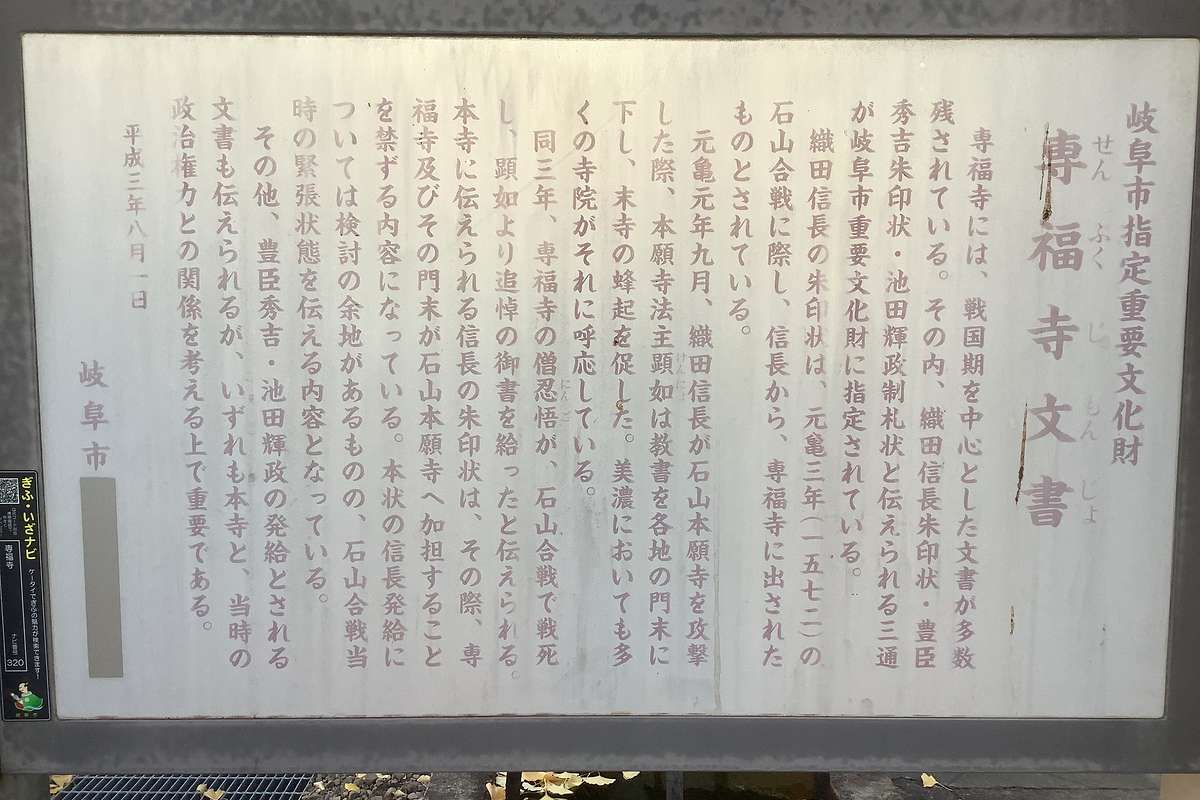 岐阜市指定重要文化財
せん ふく じ もん じょ
専福寺文書
専福寺には、戦国期を中心とした文書が多数
残されている。その内、織田信長朱印状・豊臣
秀吉朱印状・池田輝政制札状と伝えられる三通
が岐阜市重要文化財に指定されている。
織田信長の朱印状は、元亀三年(一五七二)の
石山合戦に際し、信長から、専福寺に出された
ものとされている。
元亀元年九月、織田信長が石山本願寺を攻撃
した際、本願寺法主顕如は教書を各地の門末に
けんにょ
下し、末寺の蜂起を促した。美濃においても多
くの寺院がそれに呼応している。
同三年、専福寺の僧忍悟が、石山合戦で戦死
にんご
し、顕如より追悼の御書を給ったと伝えられる。
本寺に伝えられる信長の朱印状は、その際、専
福寺及びその門末が石山本願寺へ加担すること
を禁ずる内容になっている。本状の信長発給に
ついては検討の余地があるものの、石山合戦当
時の緊張状態を伝える内容となっている。
その他、豊臣秀吉・池田輝政の発給とされる
文書も伝えられるが、いずれも本寺と、当時の
政治権力との関係を考える上で重要である。
平成三年八月一日
岐阜市
ぎふ・いざナビ
ケータイでぎふの魅力が検索できます!
専福寺
ナビ番号
320